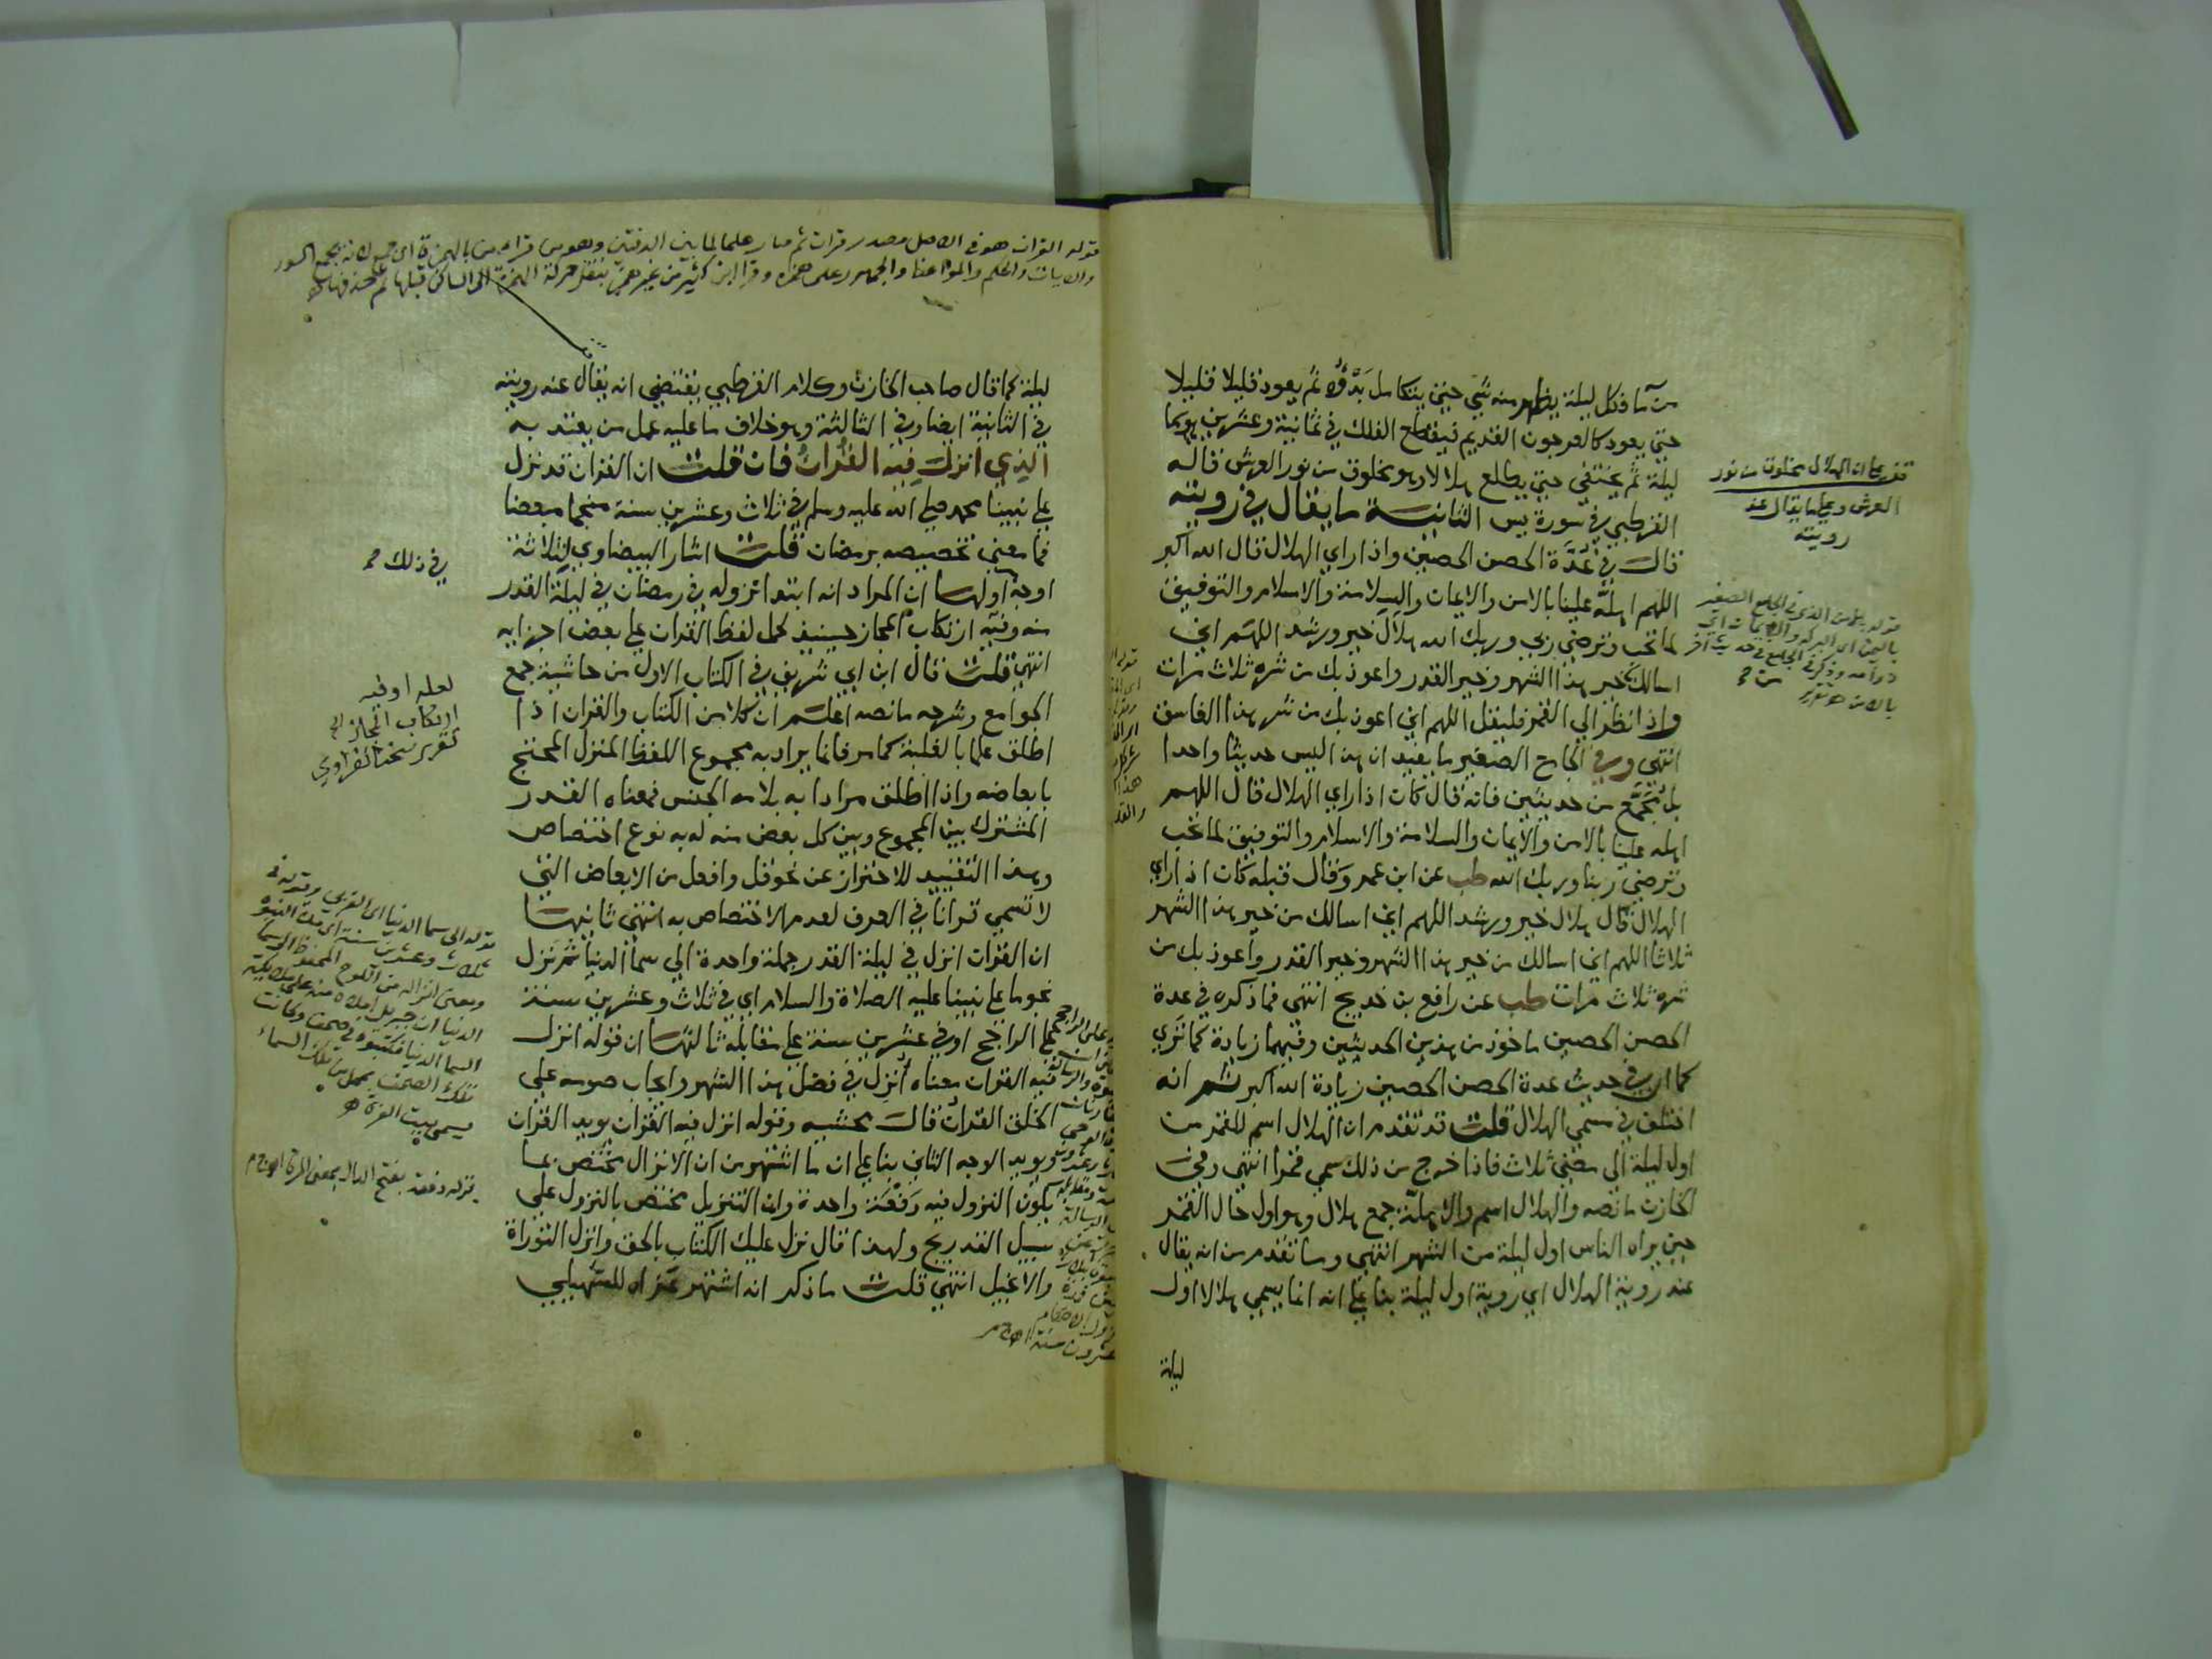 من ماء فكل ليلة يظهر منه شي حتى يتكامل بدوه ثم يعود قليلا قليلا
حتى يعود كالعرجون القديم فيقطع الفلك في ثمانية وعشرين يوما
ليلة ثم يختفي حتى يطلع هلالا وهو مخلوق من نور العرش قاله
القرطبي في سورة يس الثانية ما يقال في رويته
قال في عدة الحصن الحصين واذا راي الهلال قال الله اكبر
اللهم اهله علينا بالامن والايمان والسلامة والاسلام والتوفيق
لما تحب وترضي ربي وربك الله هلال خير ورشد اللهم اني
اسالك خير هذا الشهر وخير القدر واعوذ بك من شره ثلاث مرات
واذا نظر الي القمر فليقل اللهم اني اعوذ بك من شر هذا الغاسق
انتهي وفي الجامع الصغير ما يفيد ان هذا ليس حديثا واحدا
بل تجمع من حديثين فانه قال كان اذا راي الهلال قال اللهم
اهله علينا بالامن والايمان والسلامة والاسلام والتوفيق لما تحب
وترضي ربنا وربك الله طب عن ابن عمر وقال قبله كان اذا راي
الهلال قال هلال خير ورشد اللهم اني اسالك من خير هذا الشهر
ثلاثا اللهم اني اسالك من خير هذا الشهر وخير القدر واعوذ بك من
شره ثلاث مرات طب عن رافع بن خديج انتهي فما ذكره في عدة
الحصن الحصين ماخوذ من هذين الحديثين وفيهما زيادة كما تري
كما ان في حديث عدة الحصن الحصين زيادة الله اكبر ثم انه
اختلف في مسمي الهلال قلت قد تقدم ان الهلال اسم للقمر من
اول ليلة الي مضي ثلاث فاذا خرج من ذلك سمي قمرا انتهي وفي
الخازن ما نصه والهلال اسم والاهلة جمع هلال وهو اول حال القمر
حين يراه الناس اول ليلة من الشهر انتهي وما تقدم من انه يقال
عند روية الهلال اي روية اول ليلة بنا علي انه انما يسمي هلالا اول
ليلة
قف علي ان الهلال مخلوق من نور
العرش وعلي ما يقال عند
رويته
قوله القران هو في الاصل مصدر قرات ثم صار علما لما بين الدفتين وهو من قرا بالهمزة اي جمع لانه يجمع السور
والايات والحكم والمواعظ والجمهور على همزه وقرا ابن كثير من غير همز بنقل حركة الهمزة الى الساكن قبلها ثم حذفها
ليلة كما قال صاحب الخازن وكلام القرطبي يقتضي انه يقال عند رويته
في الثانية ايضا وفي الثالثة وهو خلاف ما عليه عمل من يعتد به
الذي انزل فيه القران فان قلت ان القران قد نزل
علي نبينا محمد صلي الله عليه وسلم في ثلاث وعشرين سنة منجما مبعضا
فما معني تخصيصه برمضان قلت اشار البيضاوي لثلاثة
اوجه اولها ان المراد انه ابتدا نزوله في رمضان في ليلة القدر
منه وفيه ارتكاب المجاز حينيذ كحمل لفظ القران علي بعض اجزايه
انتهي قلت قال ابن ابي شريف في الكتاب الاول من حاشية جمع
الجوامع وشرحه ما نصه اعلم ان كلا من الكتاب والقران اذا
اطلق علما بالغلبة كما مر فانما يراد به مجموع اللفظ المنزل المحتج
بابعاضه واذا اطلق مرادا به بلامه الجنس فمعناه القدر
المشترك بين المجموع وبين كل بعض منه له به نوع اختصاص
وبهذا التقييد للاحتراز عن نحو قل وافعل من الابعاض التي
لا تسمي قرانا في العرف لعدم الاختصاص به انتهى ثانيها
ان القران انزل في ليلة القدر جملة واحدة الي سما الدنيا ثم نزل
نجوما علي نبينا عليه الصلاة والسلام اي في ثلاث وعشرين سنة
علي الراجح او في عشرين سنة علي مقابله ثالثها ان قوله انزل
فيه القران معناه انزل في فضل هذا الشهر وايجاب صومه علي
الخلق القران قال محشيه وقوله انزل فيه القران يويد القران
ويويد الوجه الثاني بنا علي ان ما اشتهر من ان الانزال يختص بما
يكون النزول فيه دفعة واحدة وان التنزيل مختص بالنزول علي
سبيل التدريج ولهذا قال نزل عليك الكتاب بالحق وانزل التوراة
والانجيل انتهي قلت ما ذكر انه اشتهر عزاه للسهيلي
في ذلك
لعله او فيه
ارتكاب المجاز
تقرير شيخنا الفراوي
قوله الى سما الدنيا اي القربى وقوله في
ثلاث وعشرين سنة اي مدة النبوة
ومعنى انزاله من اللوح المحفوظ الى سما
الدنيا ان جبريل املاه منه على ملايكة
السما الدنيا فكتبوه في صحف وكانت
تلك الصحف بمحل من تلك السماء
يسمى بيت العزة
قوله دفعة بفتح الدال بمعنى المرة